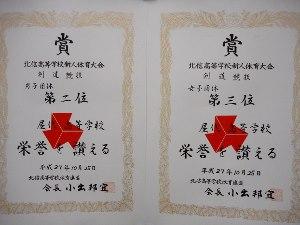 賞
北信高等学校新人体育大会
剣道競技
男子団体
第二位
屋代高等学校
栄誉を讃える
平成27年10月25日
北信高等学校体育連盟
会長 小出邦宜
賞
北信高等学校新人体育大会
剣道競技
女子団体
第三位
屋代高等学校
栄誉を讃える
平成27年10月25日
北信高等学校体育連盟
会長 小出邦宜